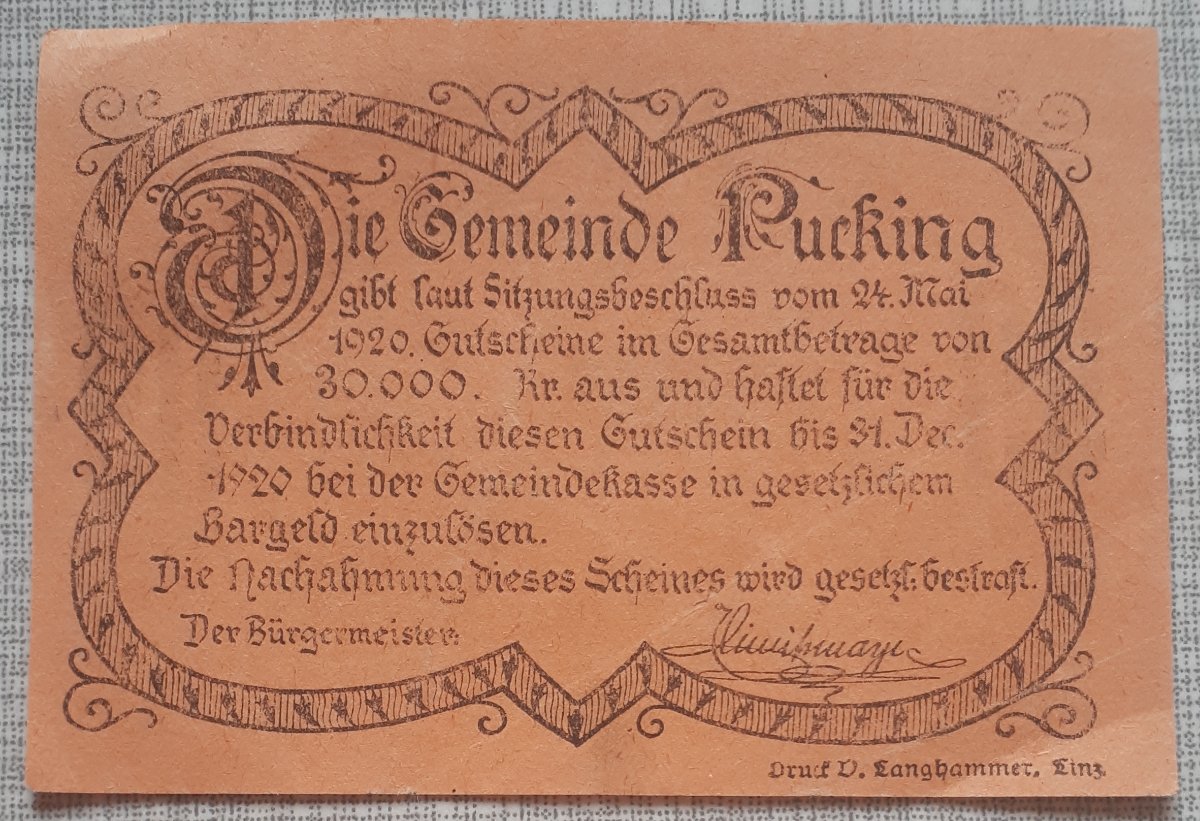 Die Gemeinde Pucking
gibt laut Sitzungsbeschluss vom 24. Mai
1920. Gutscheine im Gesamtbetrage von
30.000. Kr. aus und haftet für die
Verbindlichkeit diesen Gutschein bis 31. Dec.
1920 bei der Gemeindekasse in gesetzlichem
Bargeld einzulösen.
Die Nachahmung dieses Scheines wird gesetzl. bestraft.
Der Bürgermeister:
Druck V. Langhammer, Linz.